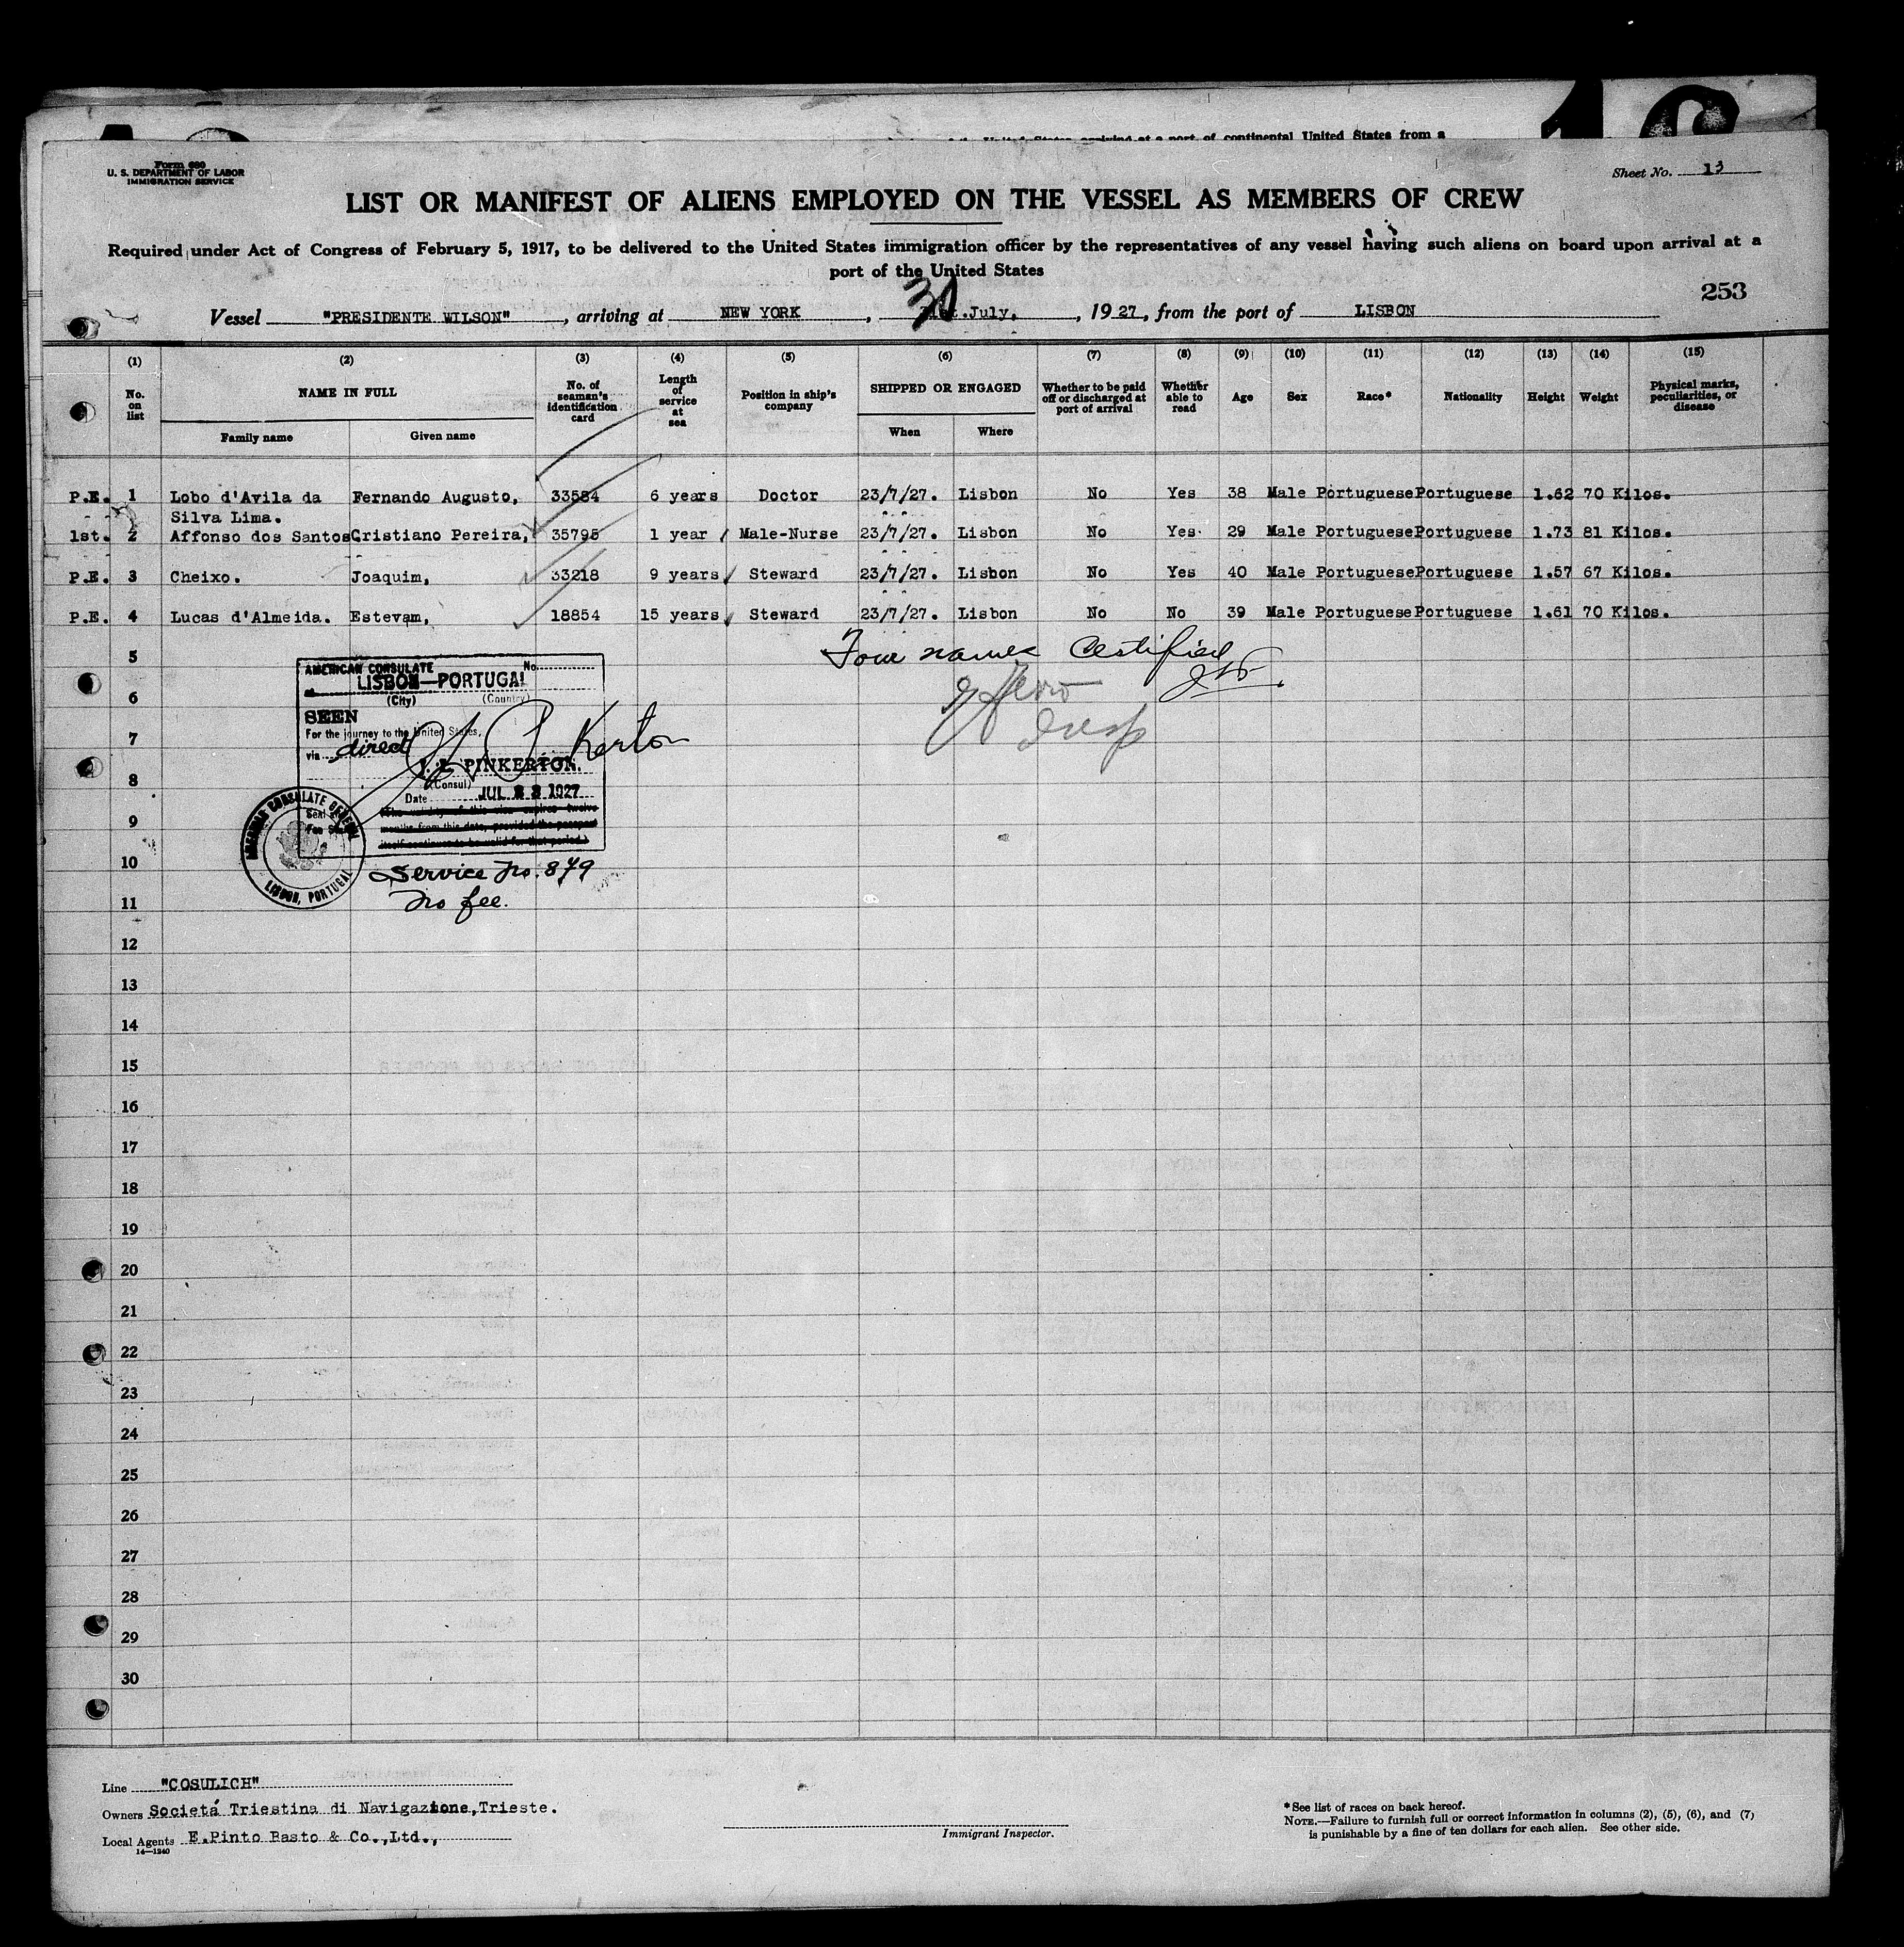 Form 680
U. S. DEPARTMENT OF LABOR
IMMIGRATION SERVICE
Sheet No. 13
LIST OR MANIFEST OF ALIENS EMPLOYED ON THE VESSEL AS MEMBERS OF CREW
Required under Act of Congress of February 5, 1917, to be delivered to the United States immigration officer by the representatives of any vessel having such aliens on board upon arrival at a
port of the United States
253
Vessel "PRESIDENTE WILSON", arriving at NEW YORK, 30 July, 1927, from the port of LISBON
(1) (2) (3) (4) (5) (6) (7) (8) (9) (10) (11) (12) (13) (14) (15)
No. on list NAME IN FULL No. of seaman's identification card Length of service at sea Position in ship's company SHIPPED OR ENGAGED Whether to be paid off or discharged at port of arrival Whether able to read Age Sex Race* Nationality Height Weight Physical marks, peculiarities, or disease
Family name Given name When Where
P.E. 1 Lobo d'Avila da Fernando Augusto, 33584 6 years Doctor 23/7/27. Lisbon No Yes 38 Male Portuguese Portuguese 1.62 70 Kilos.
Silva Lima.
1st. 2 Affonso dos Santos Cristiano Pereira, 35795 1 year Male-Nurse 23/7/27. Lisbon No Yes 29 Male Portuguese Portuguese 1.73 81 Kilos.
P.E. 3 Cheixo. Joaquim, 33218 9 years Steward 23/7/27. Lisbon No Yes 40 Male Portuguese Portuguese 1.57 67 Kilos.
P.E. 4 Lucas d'Almeida. Estevam, 18854 15 years Steward 23/7/27. Lisbon No No 39 Male Portuguese Portuguese 1.61 70 Kilos.
Four names Certified
5
6
7
8
9
10
11
12
13
14
15
16
17
18
19
20
21
22
23
24
25
26
27
28
29
30
AMERICAN CONSULATE No.
at LISBON—PORTUGAL
(City) (Country)
SEEN
For the journey to the United States,
via direct
PINKERTON.
(Consul)
Date JUL 23 1927
(The validity of this visa expires twelve
months from this date, provided the passport
itself continues to be valid for that period.)
AMERICAN CONSULATE GENERAL
LISBON, PORTUGAL
Service No. 879
No fee.
Line "COSULICH"
Owners Societá Triestina di Navigazione, Trieste.
Local Agents E.Pinto Basto & Co.,Ltd.,
14—1240
Immigrant Inspector.
*See list of races on back hereof.
NOTE.—Failure to furnish full or correct information in columns (2), (5), (6), and (7)
is punishable by a fine of ten dollars for each alien. See other side.